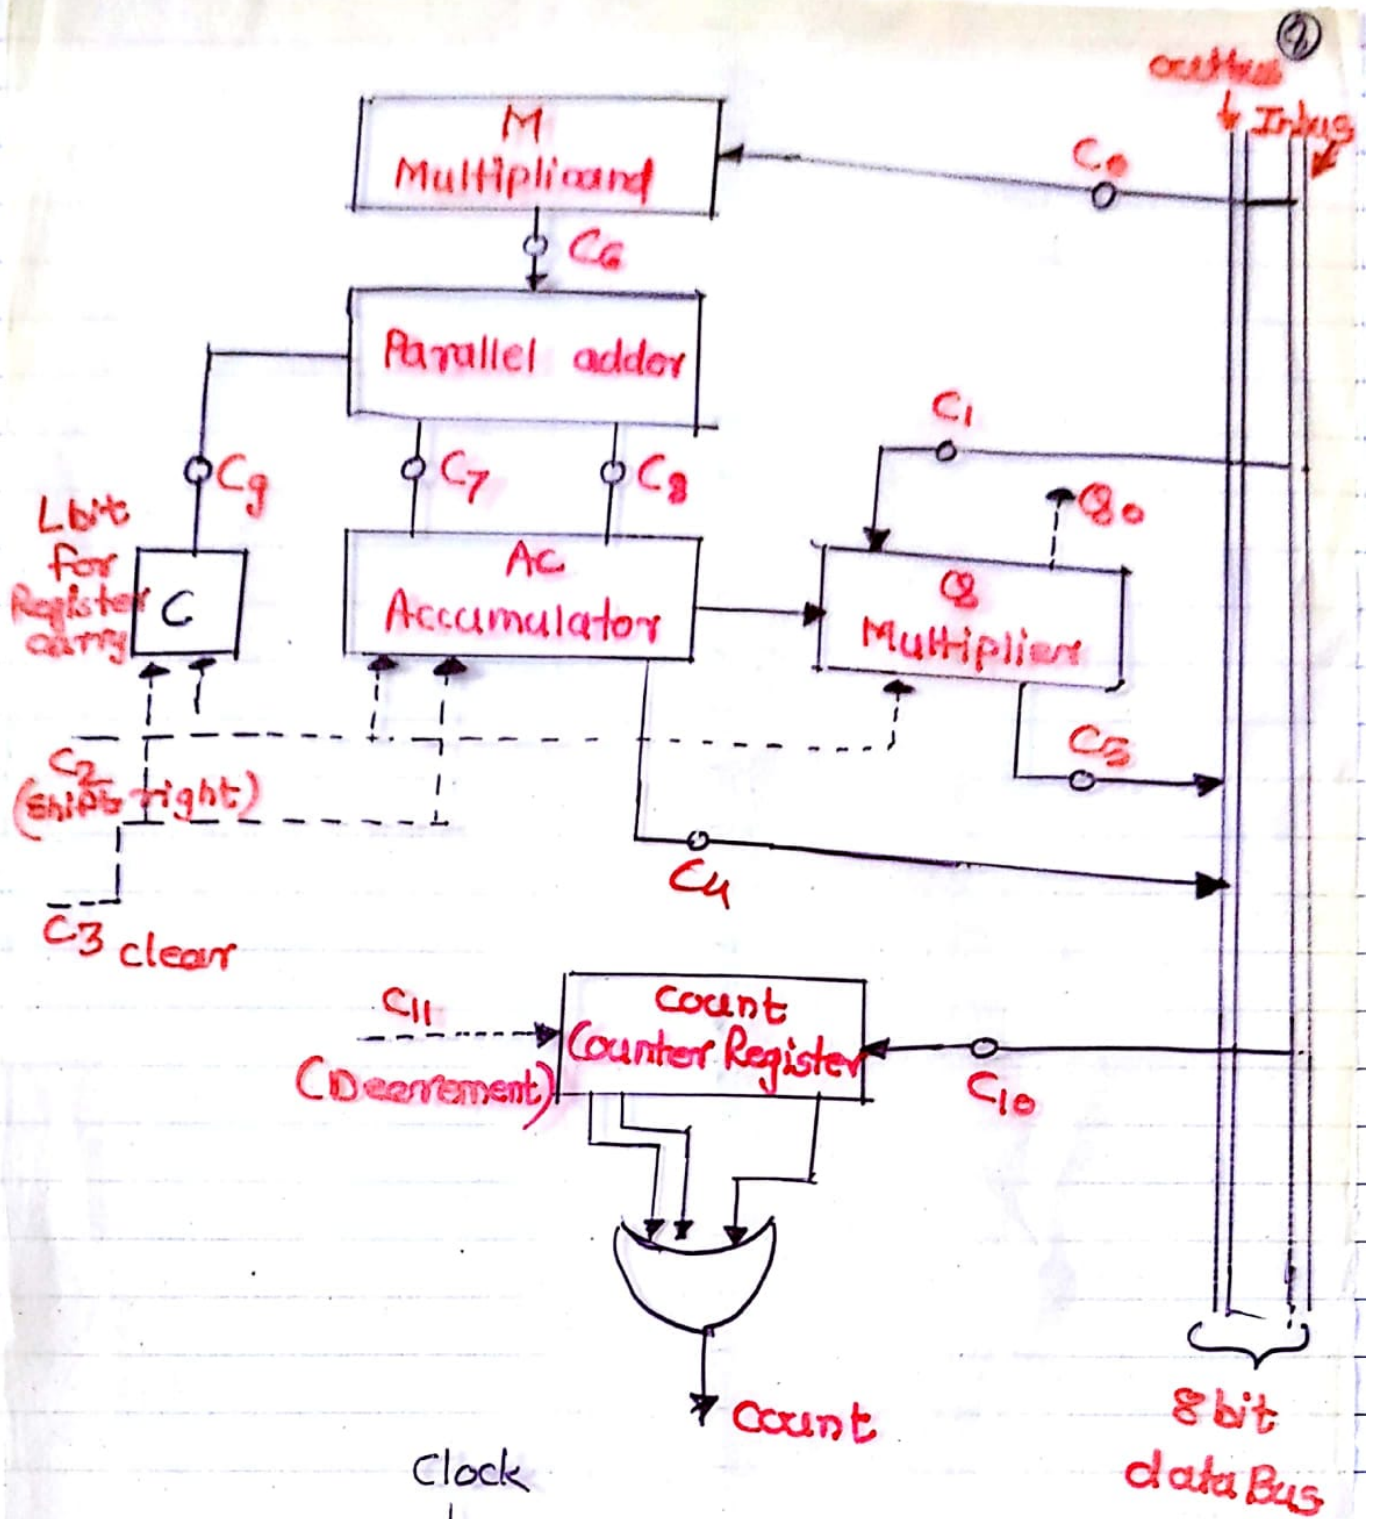 2
outbus
Inbus
M
Multiplicand
C0
C6
Parallel adder
C1
C9
C7
C8
Q0
1bit
for
Register
carry
C
AC
Accumulator
Q
Multiplier
C5
C2
(shift right)
C4
C3 clear
C11
(Decrement)
Count
Counter Register
C10
count
8bit
data Bus
Clock